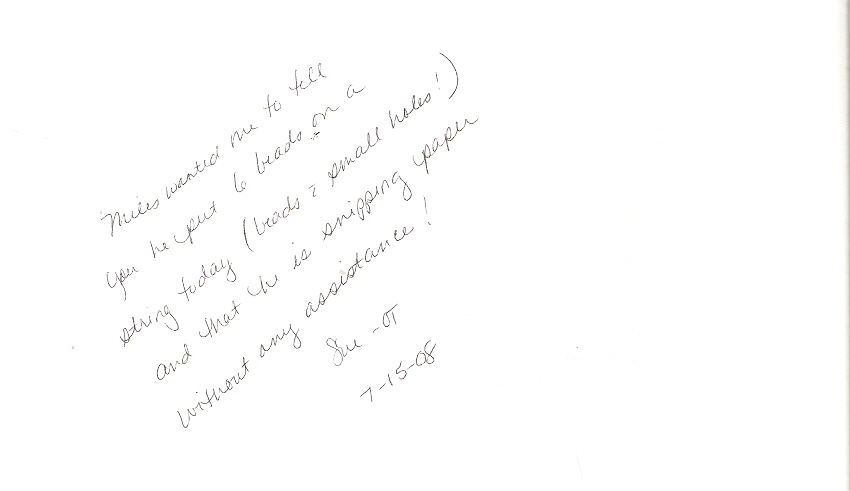 Miles wanted me to tell
you he put 6 beads on a
string today (beads = small holes!)
and that he is snipping paper
without any assistance!
Sue - OT
7-15-08